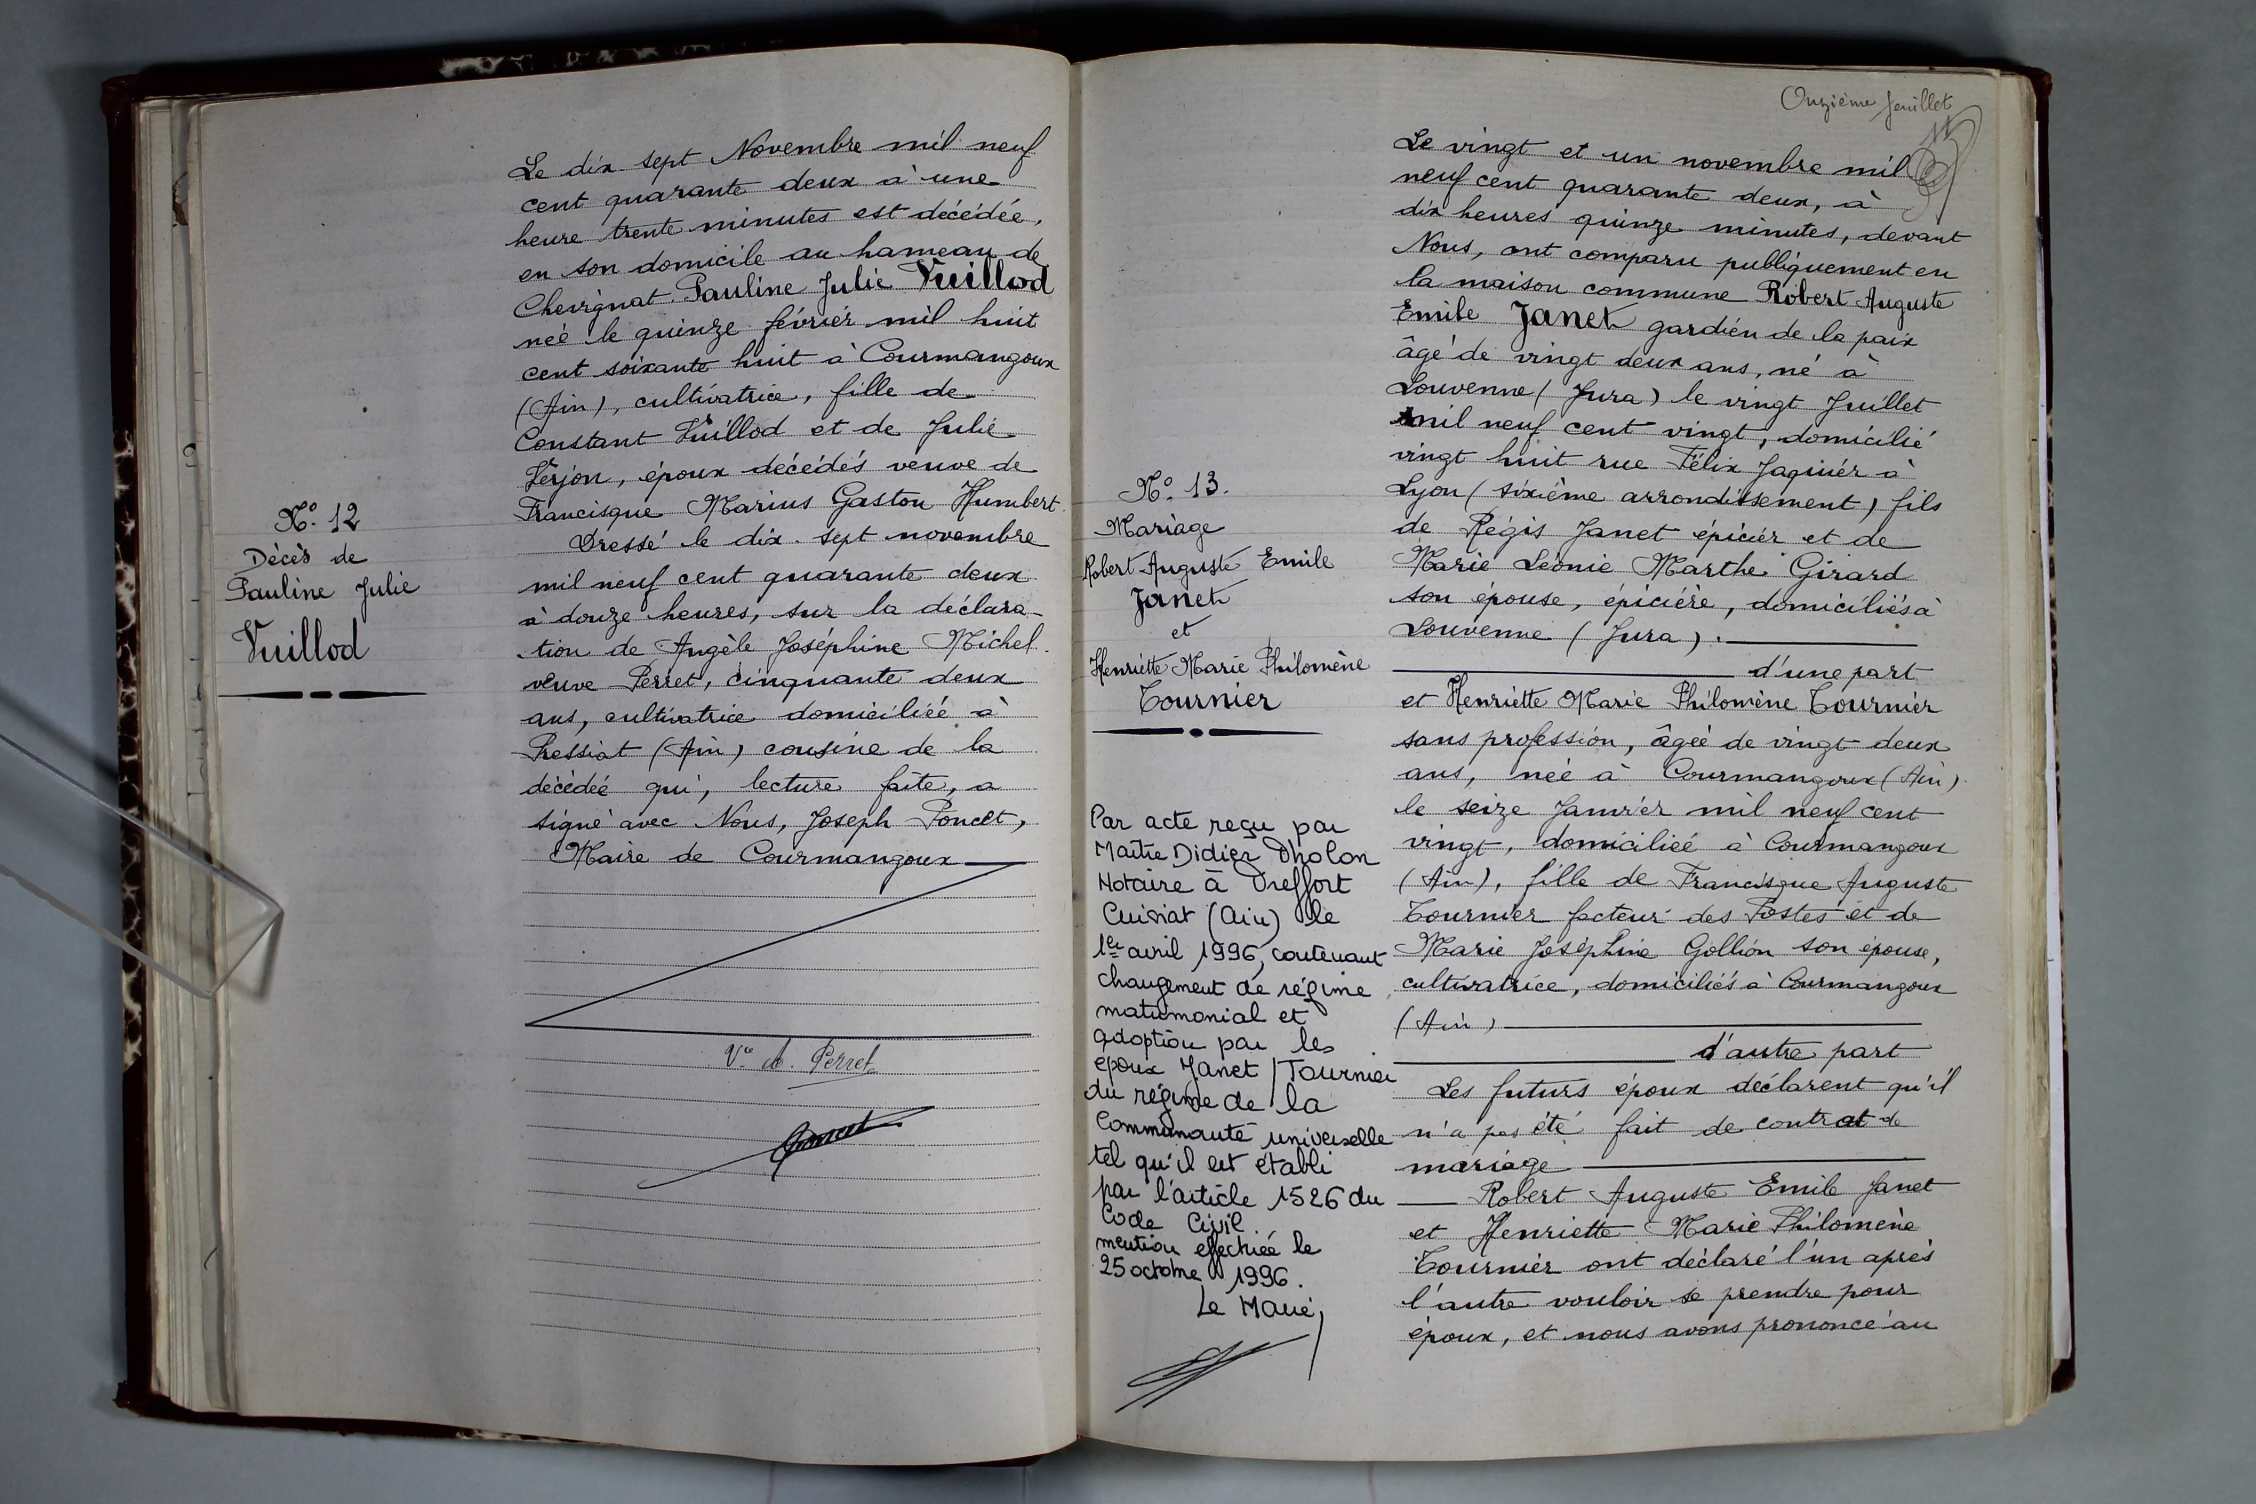 N° 12
Décès de
Pauline Julie
Vuillod
Le dix sept Novembre mil neuf
cent quarante deux à une
heure trente minutes est décédée,
en son domicile au hameau de
Chevignat Pauline Julie Vuillod
née le quinze février mil huit
cent soixante huit à Courmangoux
(Ain), cultivatrice, fille de
Constant Vuillod et de Julie
Verjon, époux décédés veuve de
Francisque Marius Gaston Humbert.
Dressé le dix sept novembre
mil neuf cent quarante deux
à douze heures, sur la déclara-
tion de Angèle Joséphine Michel
veuve Perret, cinquante deux
ans, cultivatrice domiciliée à
Pressiat (Ain) cousine de la
décédée qui, lecture faite, a
signé avec Nous, Joseph Poncet,
Maire de Courmangoux
Vve Perret
Poncet
Onzième feuillet
11
N° 13.
Mariage
Robert Auguste Emile
Janet
et
Henriette Marie Philomène
Tournier
Par acte reçu par
Maître Didier Dholon
Notaire à Treffort
Cuisiat (Ain) le
1er avril 1996, contenant
changement de régime
matrimonial et
adoption par les
époux Janet / Tournier
du régime de la
Communauté universelle
tel qu'il est établi
par l'article 1526 du
Code Civil.
mention effectuée le
25 octobre 1996.
Le Maire,
Le vingt et un novembre mil
neuf cent quarante deux, à
dix heures quinze minutes, devant
Nous, ont comparu publiquement en
la maison commune Robert Auguste
Emile Janet gardien de la paix
âgé de vingt deux ans, né à
Louvenne (Jura) le vingt Juillet
mil neuf cent vingt, domicilié
vingt huit rue Félix Jaquier à
Lyon (sixième arrondissement) fils
de Régis Janet épicier et de
Marie Léonie Marthe Girard
son épouse, épicière, domiciliés à
Louvenne (Jura).
d'une part
et Henriette Marie Philomène Tournier
sans profession, âgée de vingt deux
ans, née à Courmangoux (Ain)
le seize Janvier mil neuf cent
vingt, domiciliée à Courmangoux
(Ain), fille de Francisque Auguste
Tournier facteur des Postes et de
Marie Joséphine Gollion son épouse,
cultivatrice, domiciliés à Courmangoux
(Ain)
d'autre part
Les futurs époux déclarent qu'il
n'a pas été fait de contrat de
mariage
Robert Auguste Emile Janet
et Henriette Marie Philomène
Tournier ont déclaré l'un après
l'autre vouloir se prendre pour
époux, et nous avons prononcé au